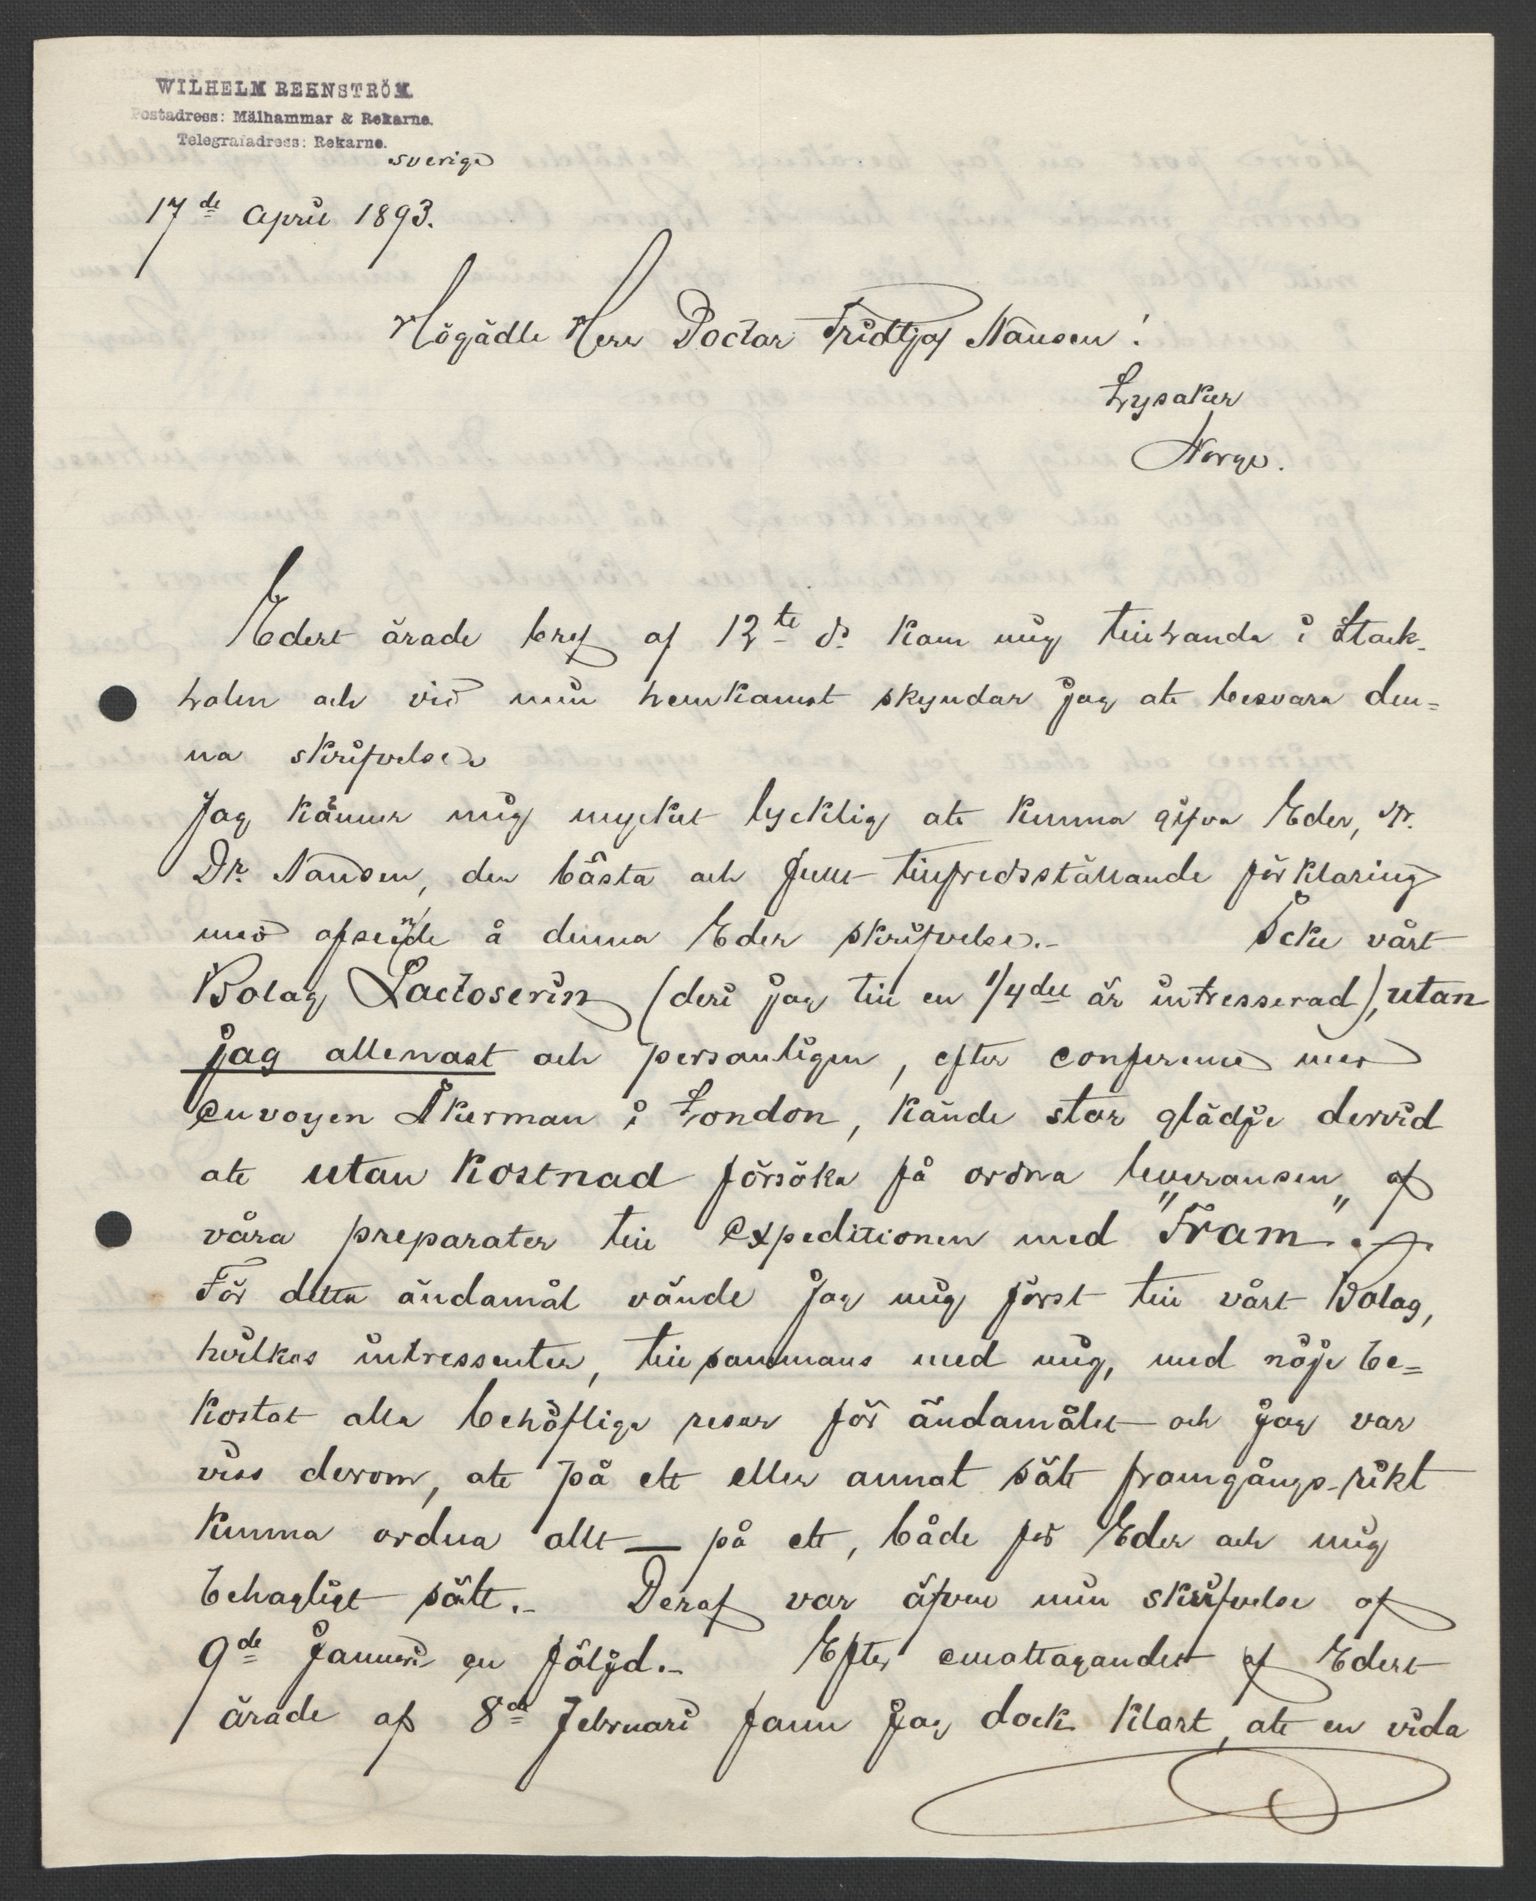 WILHELM REHNSTRÖM.
Postadress: Mälhammar & Rekarne.
Telegrafadress: Rekarne.
sverige
17de April 1893.
Högädle Herr Doctor Fridtjof Nansen!
Lysaker
Norge.
Edert ärade bref af 12te ds kom mig tillhanda i Stock-
holm och vid min hemkomst skyndar jag att besvara den=
na skrifvelse
Jag känner mig mycket lycklig att kunna gifva Eder, Hr.
Dr. Nansen, den bästa och fullt tillfredsställande förklaring
med afseende å denna Eder skrifvelse.- Icke vårt
Bolag Lactoserin (deri jag till en 1/4del är intresserad), utan
jag allenast och personligen, efter conference med
envoyen Åkerman i London, kände stor glädje dervid
att utan kostnad försöka få ordna leveransen af
våra preparater till Expeditionen med "Fram".-
För detta ändamål vände jag mig först till vårt Bolag,
hvilkas intressenter, tillsammans med mig, med nöje be=
kostat alla behöfliga resor för ändamålet och jag var
viss derom, att på ett eller annat sätt framgångs-rikt
kunna ordna allt — på ett, både för Eder och mig
behagligt sätt.- Deraf var äfven min skrifvelse af
9de Januari en följd.- Efter emottagandet af Edert
ärade af 8de Februari fann jag dock klart, att en vida